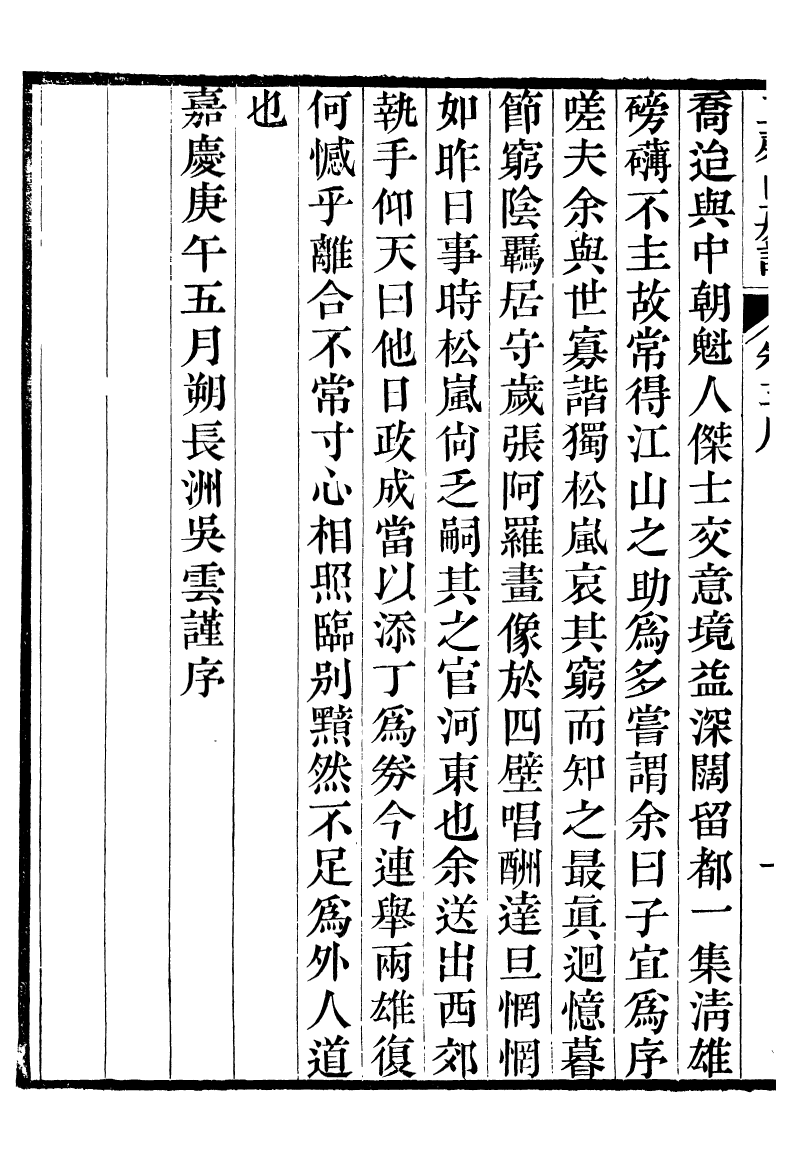 喬治與中朝魁人傑士交意境益深闊留都一集淸雄
磅礴不主故常得江山之助爲多嘗謂余曰子宜爲序
嗟夫余與世寡諧獨松嵐哀其窮而知之最眞迴憶暮
節窮陰羈居守歲張阿羅畫像於四壁唱酬達旦惘惘
如昨日事時松嵐尙乏嗣其之官河東也余送出西郊
執手仰天曰他日政成當以添丁爲劵今連舉兩雄復
何憾乎離合不常寸心相照臨别黯然不足爲外人道
也
嘉慶庚午五月朔長洲吳雲謹序